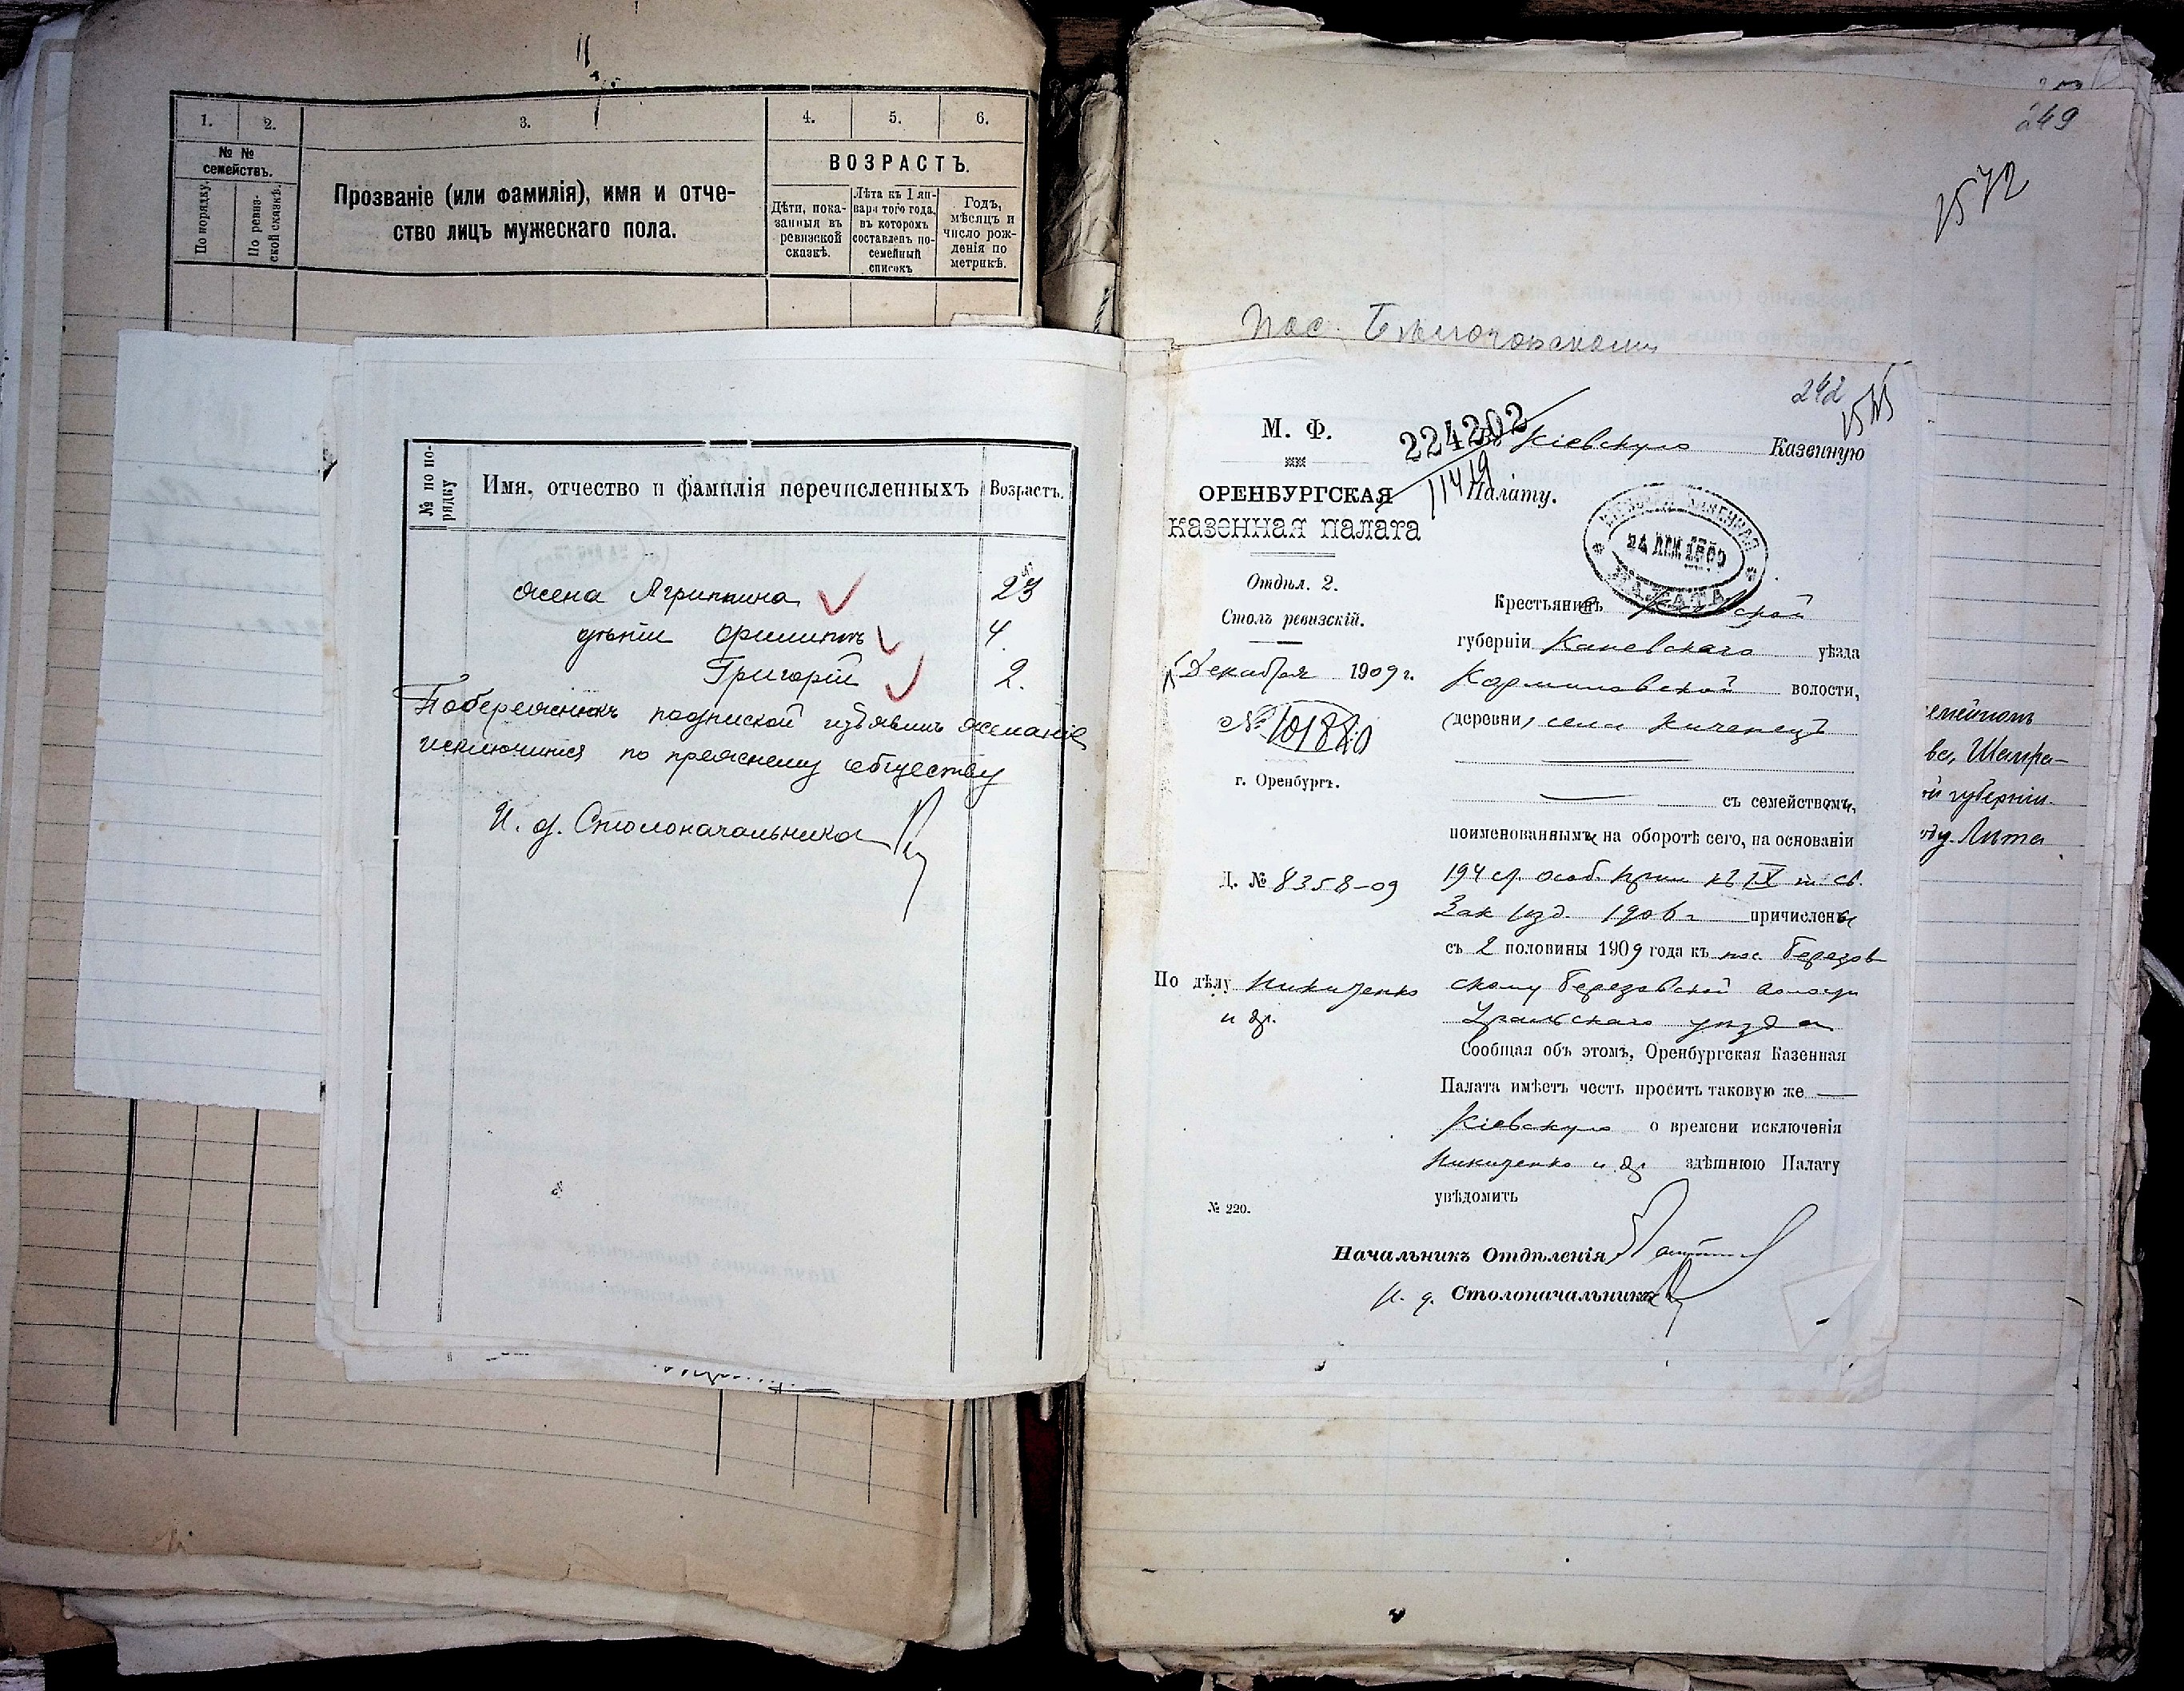 1. 2. 3. 4. 5. 6.
№ № семействъ.
По порядку.
По ревиз-
ской сказкѣ.
Прозваніе (или фамилія), имя и отче-
ство лицъ мужескаго пола.
ВОЗРАСТЪ.
Дѣти, пока-
занныя въ
ревизской
сказкѣ.
Лѣта къ 1 ян-
варя того года,
въ которомъ
составленъ по-
семейный
списокъ
Годъ,
мѣсяцъ и
число рож-
денія по
метрикѣ.
№ по по-
рядку
Имя, отчество и фамилія перечисленныхъ
Возрастъ.
жена Агриппина 23
дѣти Филиппъ 4.
Григорій 2.
Побережникъ подпиской изъявилъ желаніе
исключится по прежнему обществу
И. д. Столоначальника
249
1572
пос.
242
М. Ф.
224202
11419
Въ Кіевскую Казенную
Палату.
ОРЕНБУРГСКАЯ
КАЗЕННАЯ ПАЛАТА
КІЕВСКАЯ КАЗЕННАЯ
24 ДЕК 1909
ПАЛАТА
Отдѣл. 2.
Столъ ревизскій.
Декабря 1909 г.
№ 101880
г. Оренбургъ.
Крестьянинъ Кіевской
губерніи Каневскаго уѣзда
волости,
(деревни) села
съ семействомъ,
поименованнымъ на оборотѣ сего, на основаніи
Д. № 8358-09
194 ст. особ. прил къ IX т. св.
Зак изд. 190 причислены
съ 2 половины 1909 года къ пос Березов
По дѣлу Никитенко
и др.
скому Березовской волости
Уральскаго уѣзда
Сообщая объ этомъ, Оренбургская Казенная
Палата имѣетъ честь просить таковую же
Кіевскую о времени исключенія
Никитенко и др здѣшнюю Палату
увѣдомить
№ 220.
Начальникъ Отдѣленія
И. д. Столоначальника
ва, Шамра-
ой губерніи.